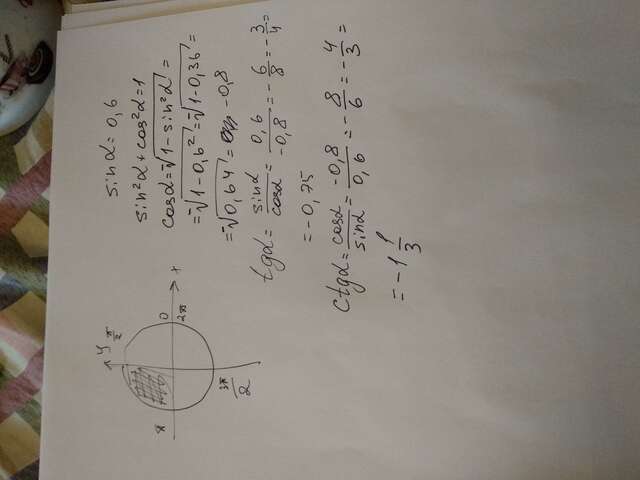 y π/2
π
0
2π
x
3π/2
sinα = 0,6
sin²α + cos²α = 1
cosα = -√(1 - sin²α) =
= -√(1 - 0,6²) = -√(1 - 0,36) =
= -√0,64 = -0,8
tgα = sinα/cosα = 0,6/-0,8 = -6/8 = -3/4 =
= -0,75
ctgα = cosα/sinα = -0,8/0,6 = -8/6 = -4/3 =
= -1 1/3